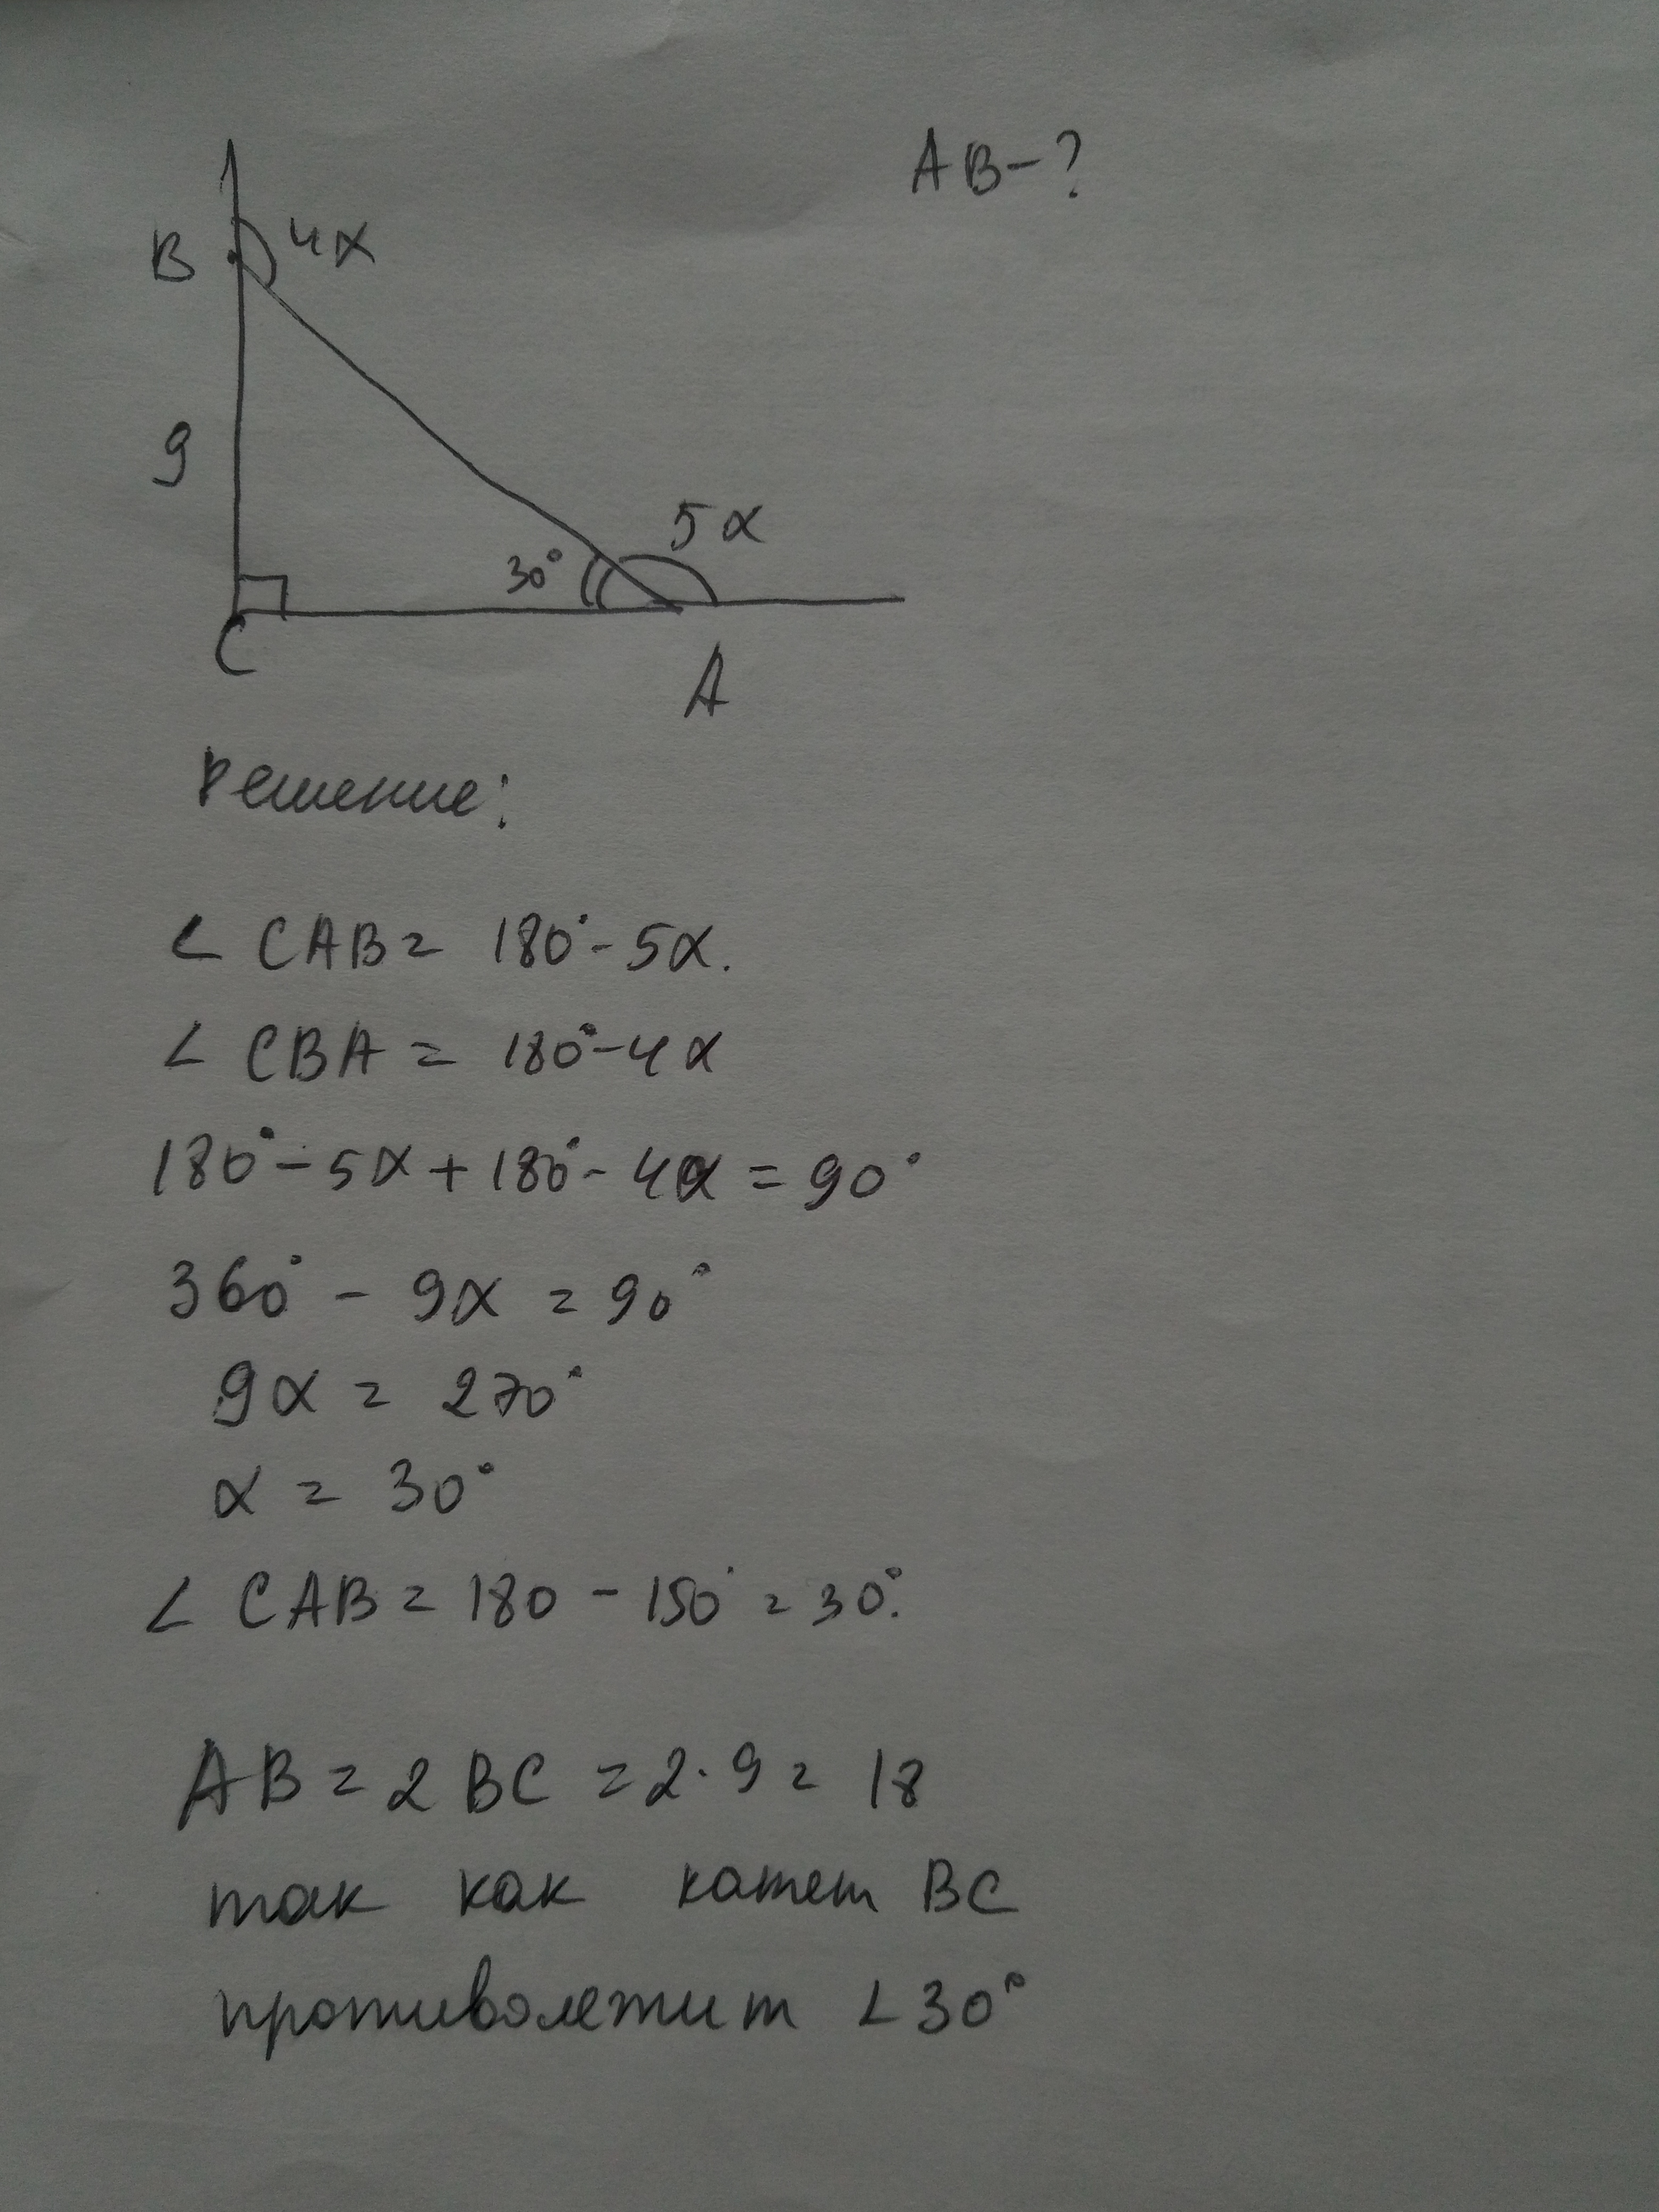 AB-?
B 4α
9
5α
30°
C
A
Решение:
∠ CAB = 180° - 5α.
∠ CBA = 180° - 4α
180° - 5α + 180° - 4α = 90°
360° - 9α = 90°
9α = 270°
α = 30°
∠ CAB = 180 - 150° = 30°.
AB = 2 BC = 2·9 = 18
так как катет BC
противолежит ∠30°